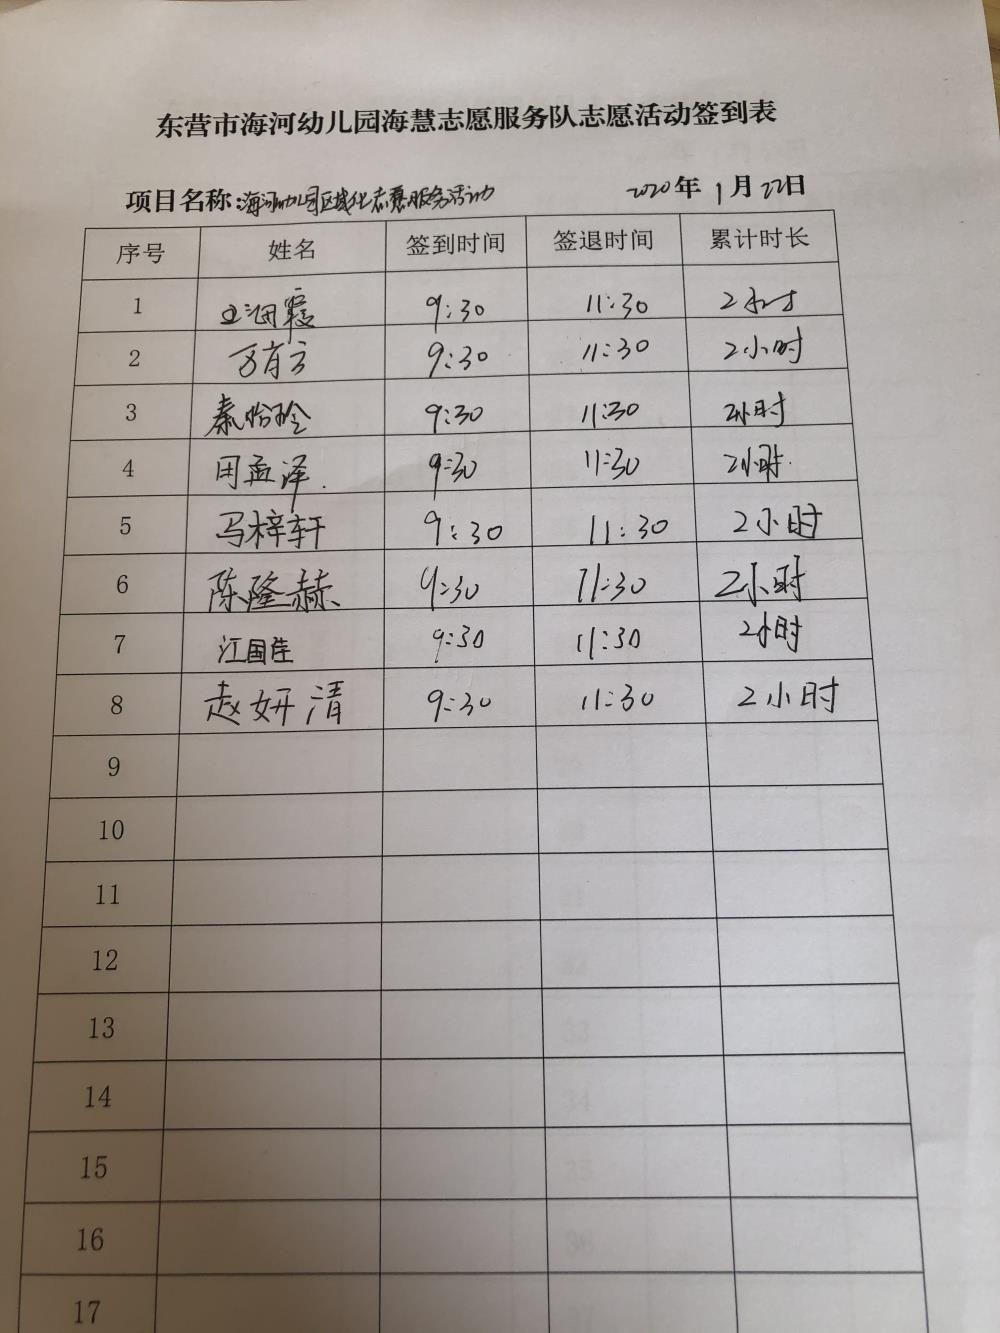 东营市海河幼儿园海慧志愿服务队志愿活动签到表
项目名称:海河幼儿园区域化志愿服务活动 2020年1月22日
序号 姓名 签到时间 签退时间 累计时长
1 王海霞 9:30 11:30 2小时
2 万肖方 9:30 11:30 2小时
3 秦怡玲 9:30 11:30 2小时
4 周孟泽. 9:30 11:30 2小时.
5 马梓轩 9:30 11:30 2小时
6 陈隆赫 9:30 11:30 2小时
7 江国佳 9:30 11:30 2小时
8 赵妍清 9:30 11:30 2小时
9
10
11
12
13
14
15
16
17